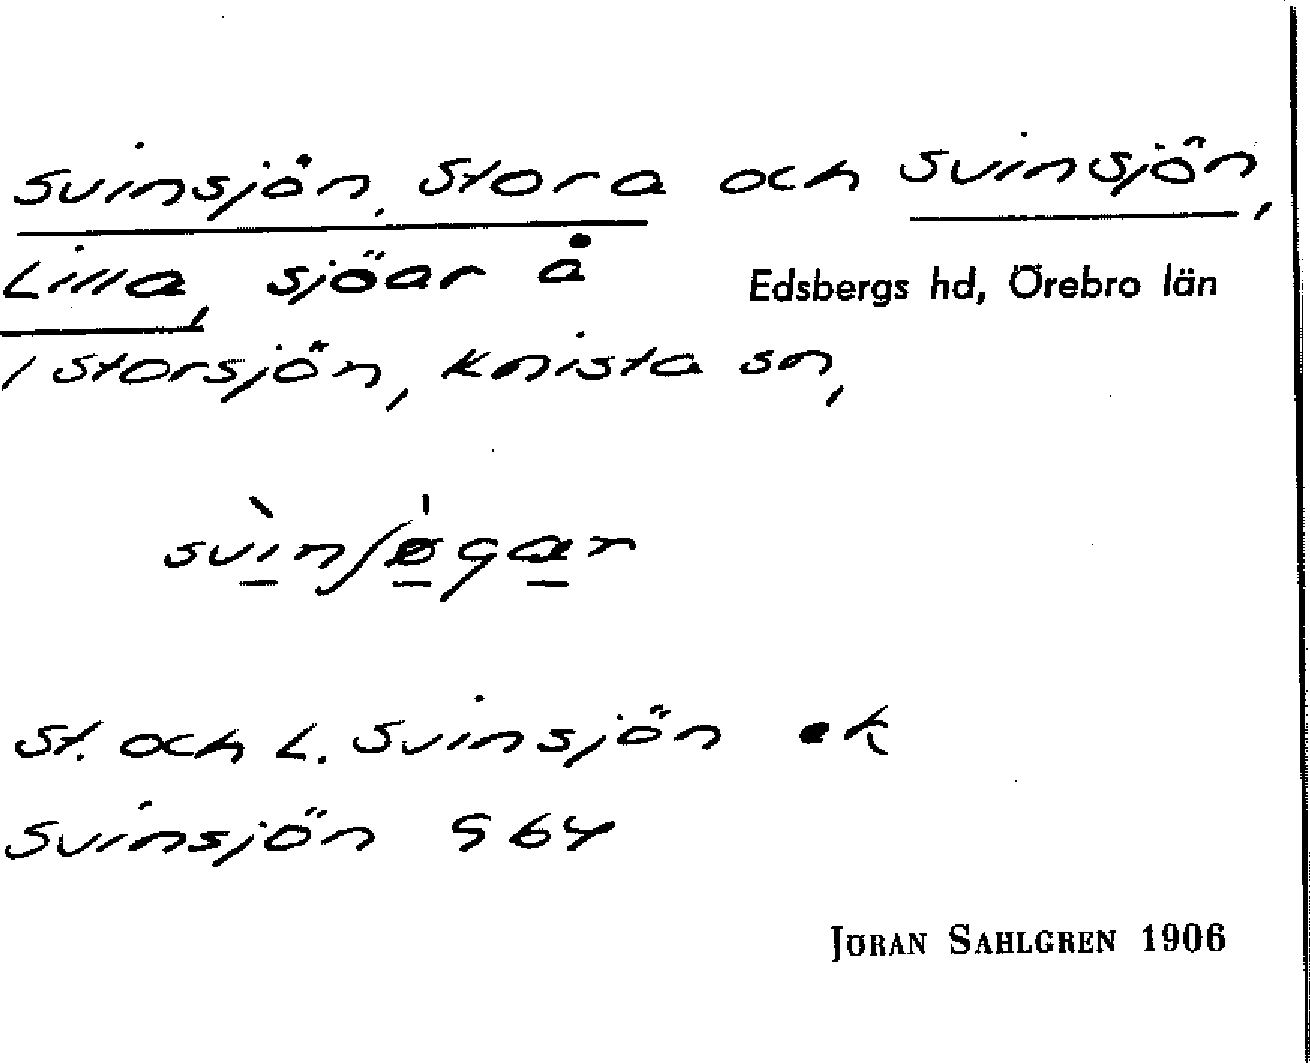 Svinsjön, Stora och Svinsjön,
Lilla, sjöar å
Edsbergs hd, Örebro län
i Storsjön, Knista sn,
svìnʃø̀gar
St. och L. Svinsjön ek
Svinsjön S 64
JÖRAN SAHLGREN 1906